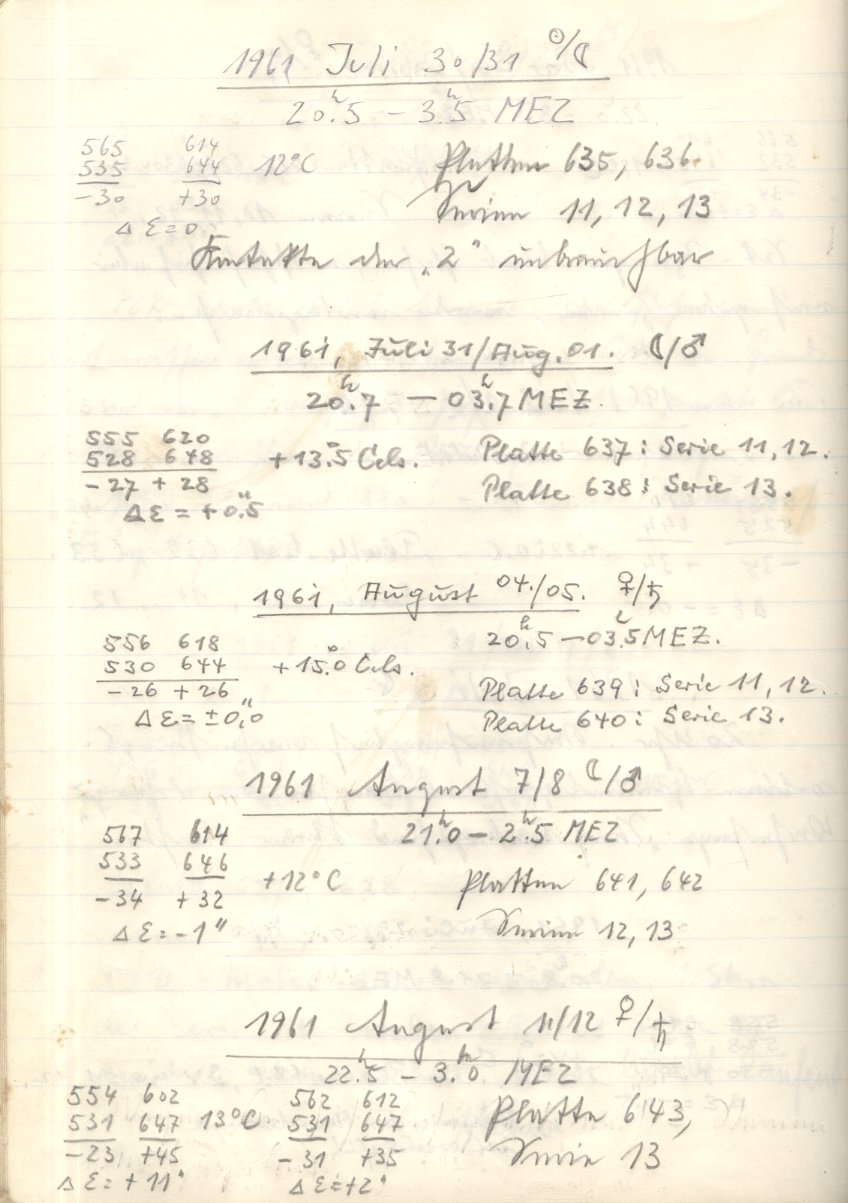 1961 Juli 30/31 ☉/☾
20.ʰ5 – 3.ʰ5 MEZ
565 614
535 644 12°C Platten 635, 636
-30 +30
Serien 11, 12, 13
Δ ε = 0
Kontakte der „2" unbrauchbar
1961, Juli 31/Aug. 01. ☾/♂
20.ʰ7 — 03.ʰ7 MEZ.
555 620
528 648 +13.°5 Cels. Platte 637: Serie 11, 12.
-27 + 28 Platte 638: Serie 13.
Δ ε = +0.″5
1961, August 04./05. ♀/♄
20.ʰ5 — 03.ʰ5 MEZ.
556 618
530 644 +15.°0 Cels.
-26 + 26 Platte 639: Serie 11, 12.
Δ ε = ±0.″0 Platte 640: Serie 13.
1961 August 7/8 ☾/♂
21.ʰ0 – 2.ʰ5 MEZ
567 614
533 646 +12°C Platten 641, 642
-34 +32
Δ ε = -1" Serien 12, 13
1961 August 11/12 ♀/♄
22.ʰ5 – 3.ʰ0 MEZ
554 602 562 612
531 647 13°C 531 647 Platte 643,
-23 +45 -31 +35 Serie 13
Δ ε = + 11" Δ ε = +2"